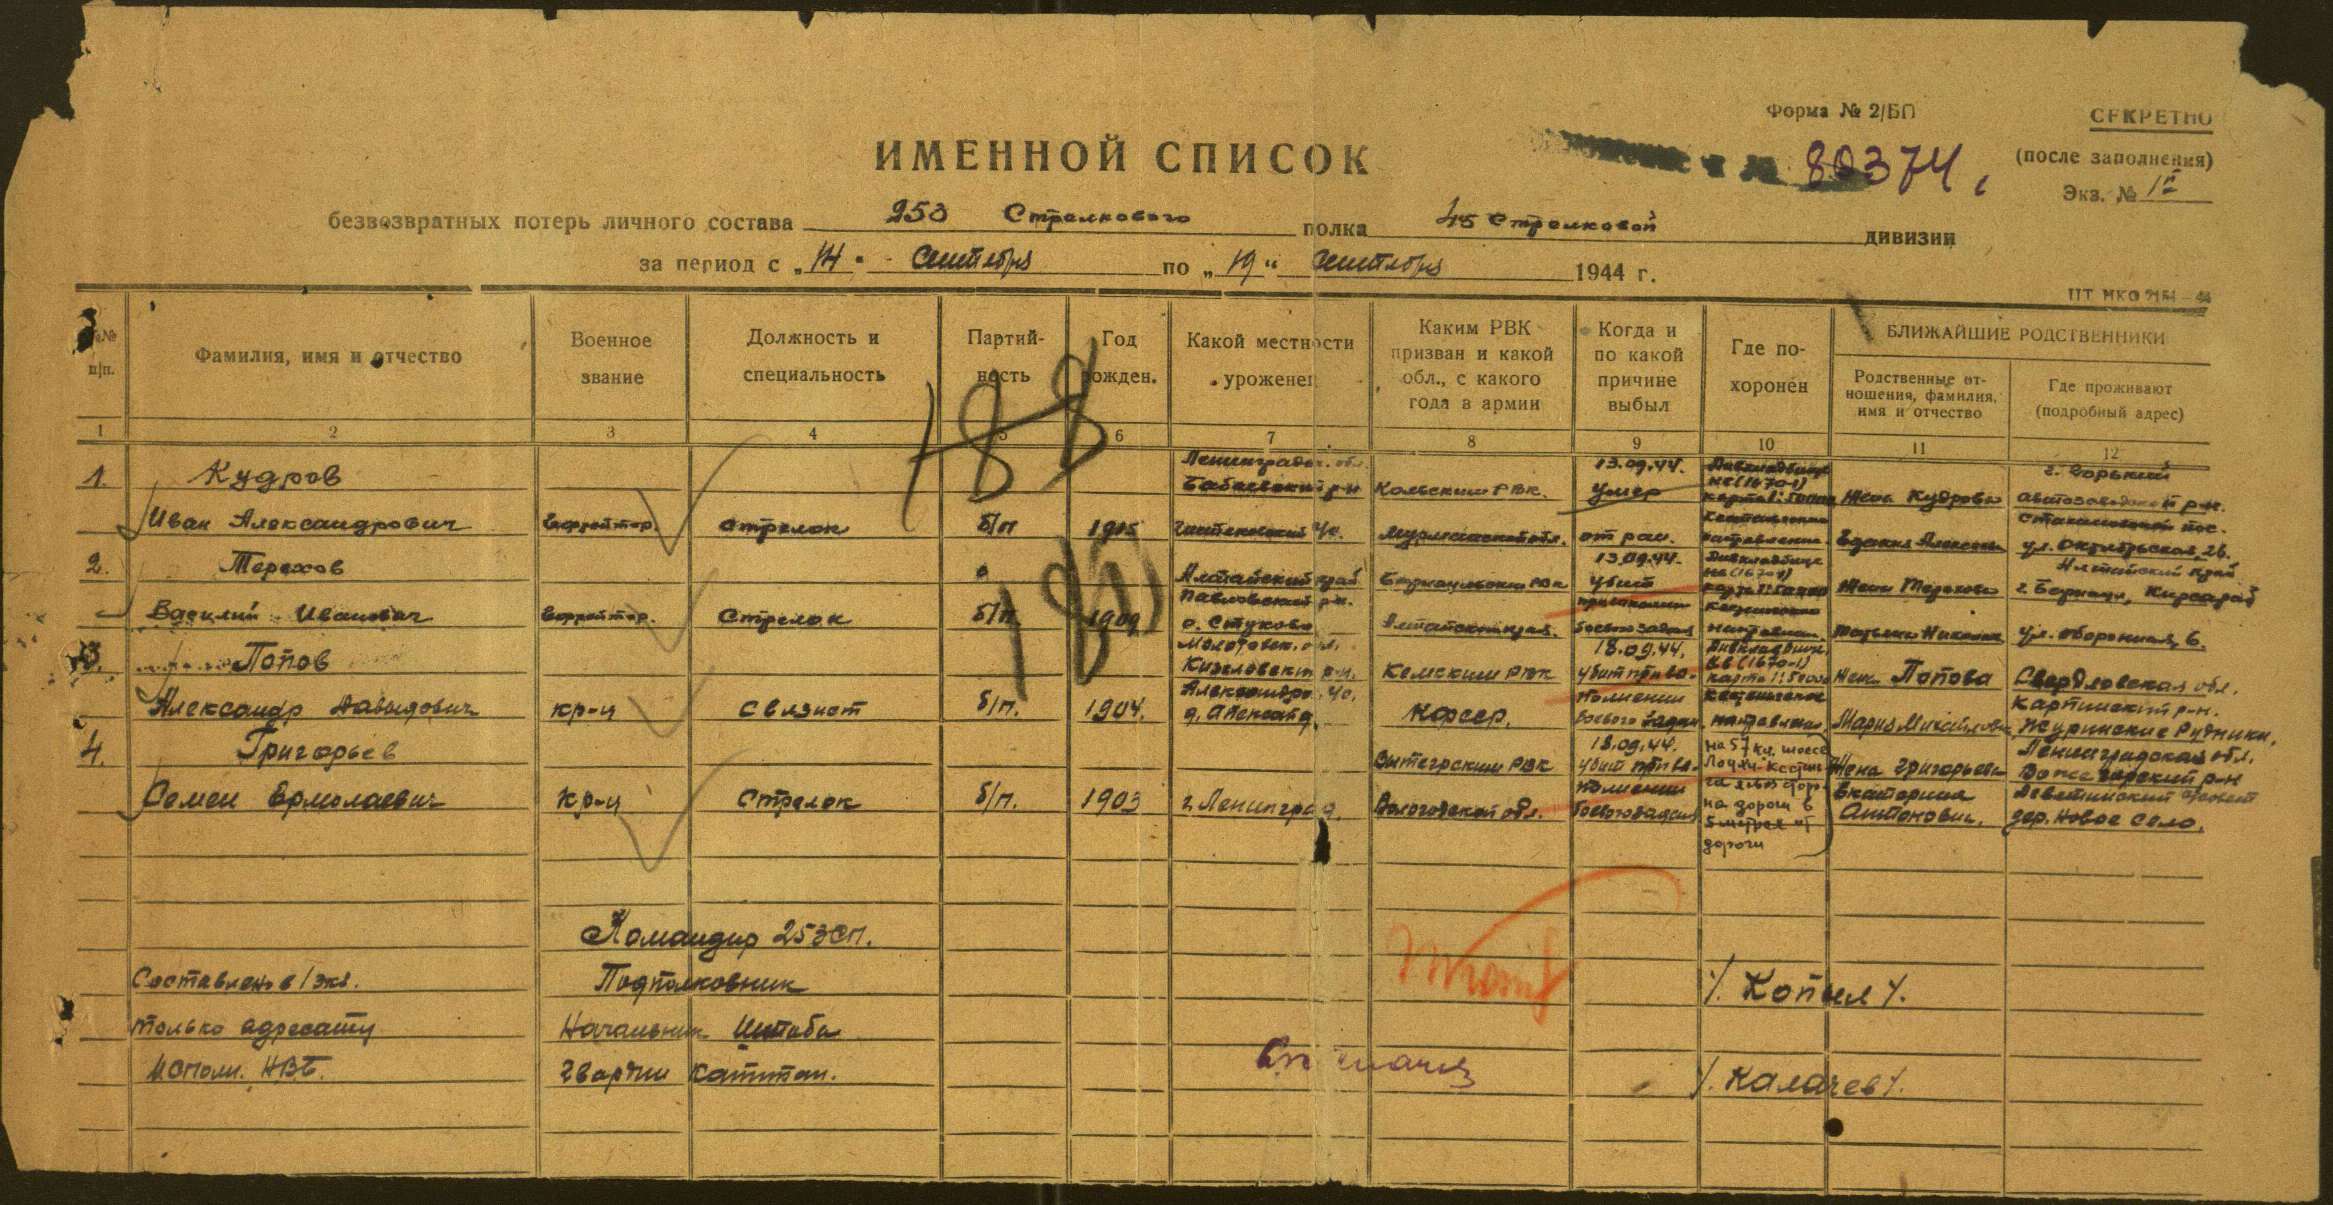 Форма № 2/БП
СЕКРЕТНО
(после заполнения)
Экз. № 1
80374
ИМЕННОЙ СПИСОК
безвозвратных потерь личного состава 253 Стрелкового полка 45 Стрелковой дивизии
за период с „14" Сентября по „19" Сентября 1944 г.
№№ п/п.
Фамилия, имя и отчество
Военное звание
Должность и специальность
Партийность
Год рожден.
Какой местности уроженец
Каким РВК призван и какой обл., с какого года в армии
Когда и по какой причине выбыл
Где похоронен
БЛИЖАЙШИЕ РОДСТВЕННИКИ
Родственные отношения, фамилия, имя и отчество
Где проживают (подробный адрес)
1 2 3 4 5 6 7 8 9 10 11 12
188
1. Кудров
Иван Александрович
Ефрейтор. стрелок б/п 1915
Ленинградск. обл.
Бабаевский р-н
Кольским РВК.
Мурманской обл.
13.09.44.
умер
от ран.
Жена Кудрова
г. Горький
автозаводской р-н.
ул. Октябрьская, 26.
2. Терехов
Василий Иванович
Ефрейтор. Стрелок б/п. 1909
Алтайский край
Павловский р-н.
с. Стуково
Алтайского края.
13.09.44.
убит
Жена Терехова
Алтайский край
г. Барнаул,
ул. Оборонная, 6.
3. Попов
Александр Давыдович
кр-ц связист б/п. 1904.
Молотовск. обл.
Кизеловский р-н.
Кемским РВК
18.09.44.
убит при вы-
полнении
боевого
Жена Попова
Мария Михайловна
Свердловская обл.
Карпинский р-н.
4. Григорьев
Семен Ермолаевич
кр-ц Стрелок б/п. 1903
г. Ленинград.
Вытегрским РВК
Вологодской обл.
18.09.44.
убит при вы-
полнении
на 57 км. шоссе
на дороги в
5 метрах от
дороги
Жена Григорьева
Екатерина
Антоновна.
Ленинградская обл.
дер. Новое Село.
Командир 253 СП.
Подполковник /. Копыл /.
Составлено в 1 экз.
только адресату
Исполн. НВБ.
Начальник Штаба
Гвардии Капитан. /. Калачев /.